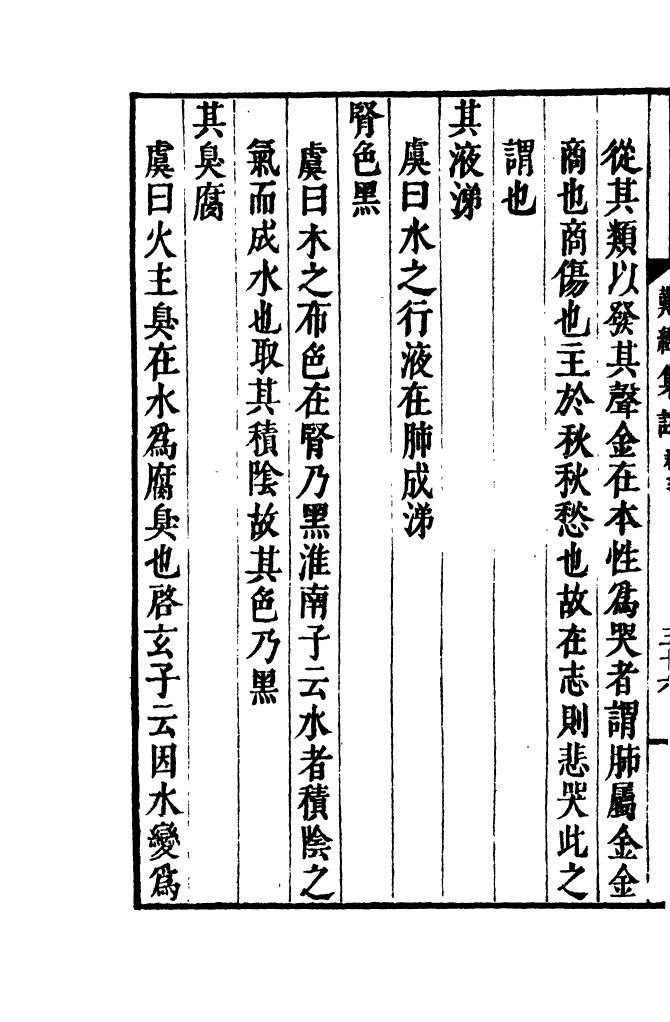 難經集註
三十六
從其類以發其聲金在本性爲哭者謂肺屬金金
商也商傷也主於秋秋愁也故在志則悲哭此之
謂也
其液涕
虞曰水之行液在肺成涕
腎色黑
虞曰木之布色在腎乃黑淮南子云水者積陰之
氣而成水也取其積陰故其色乃黑
其臭腐
虞曰火主臭在水爲腐臭也啓玄子云因水變爲